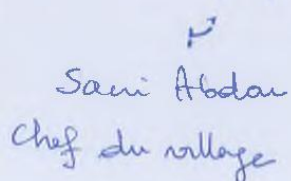 Sani Abdou
Chef du village